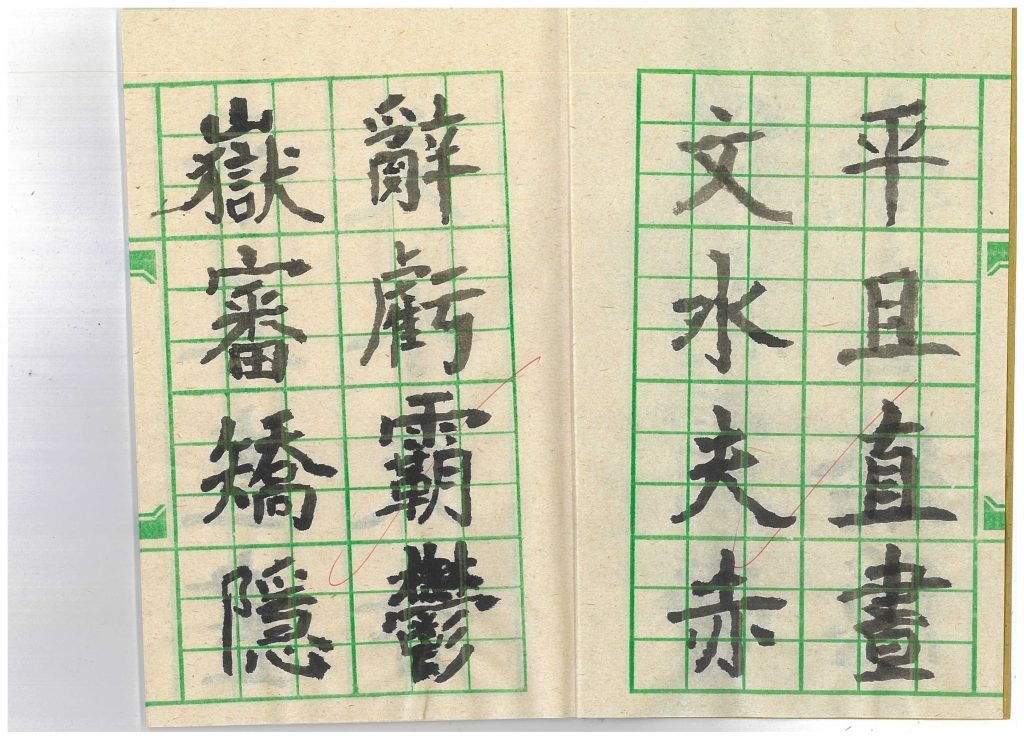 平且直晝
文水夫赤
辭虧霸鬱
嶽審矯隱